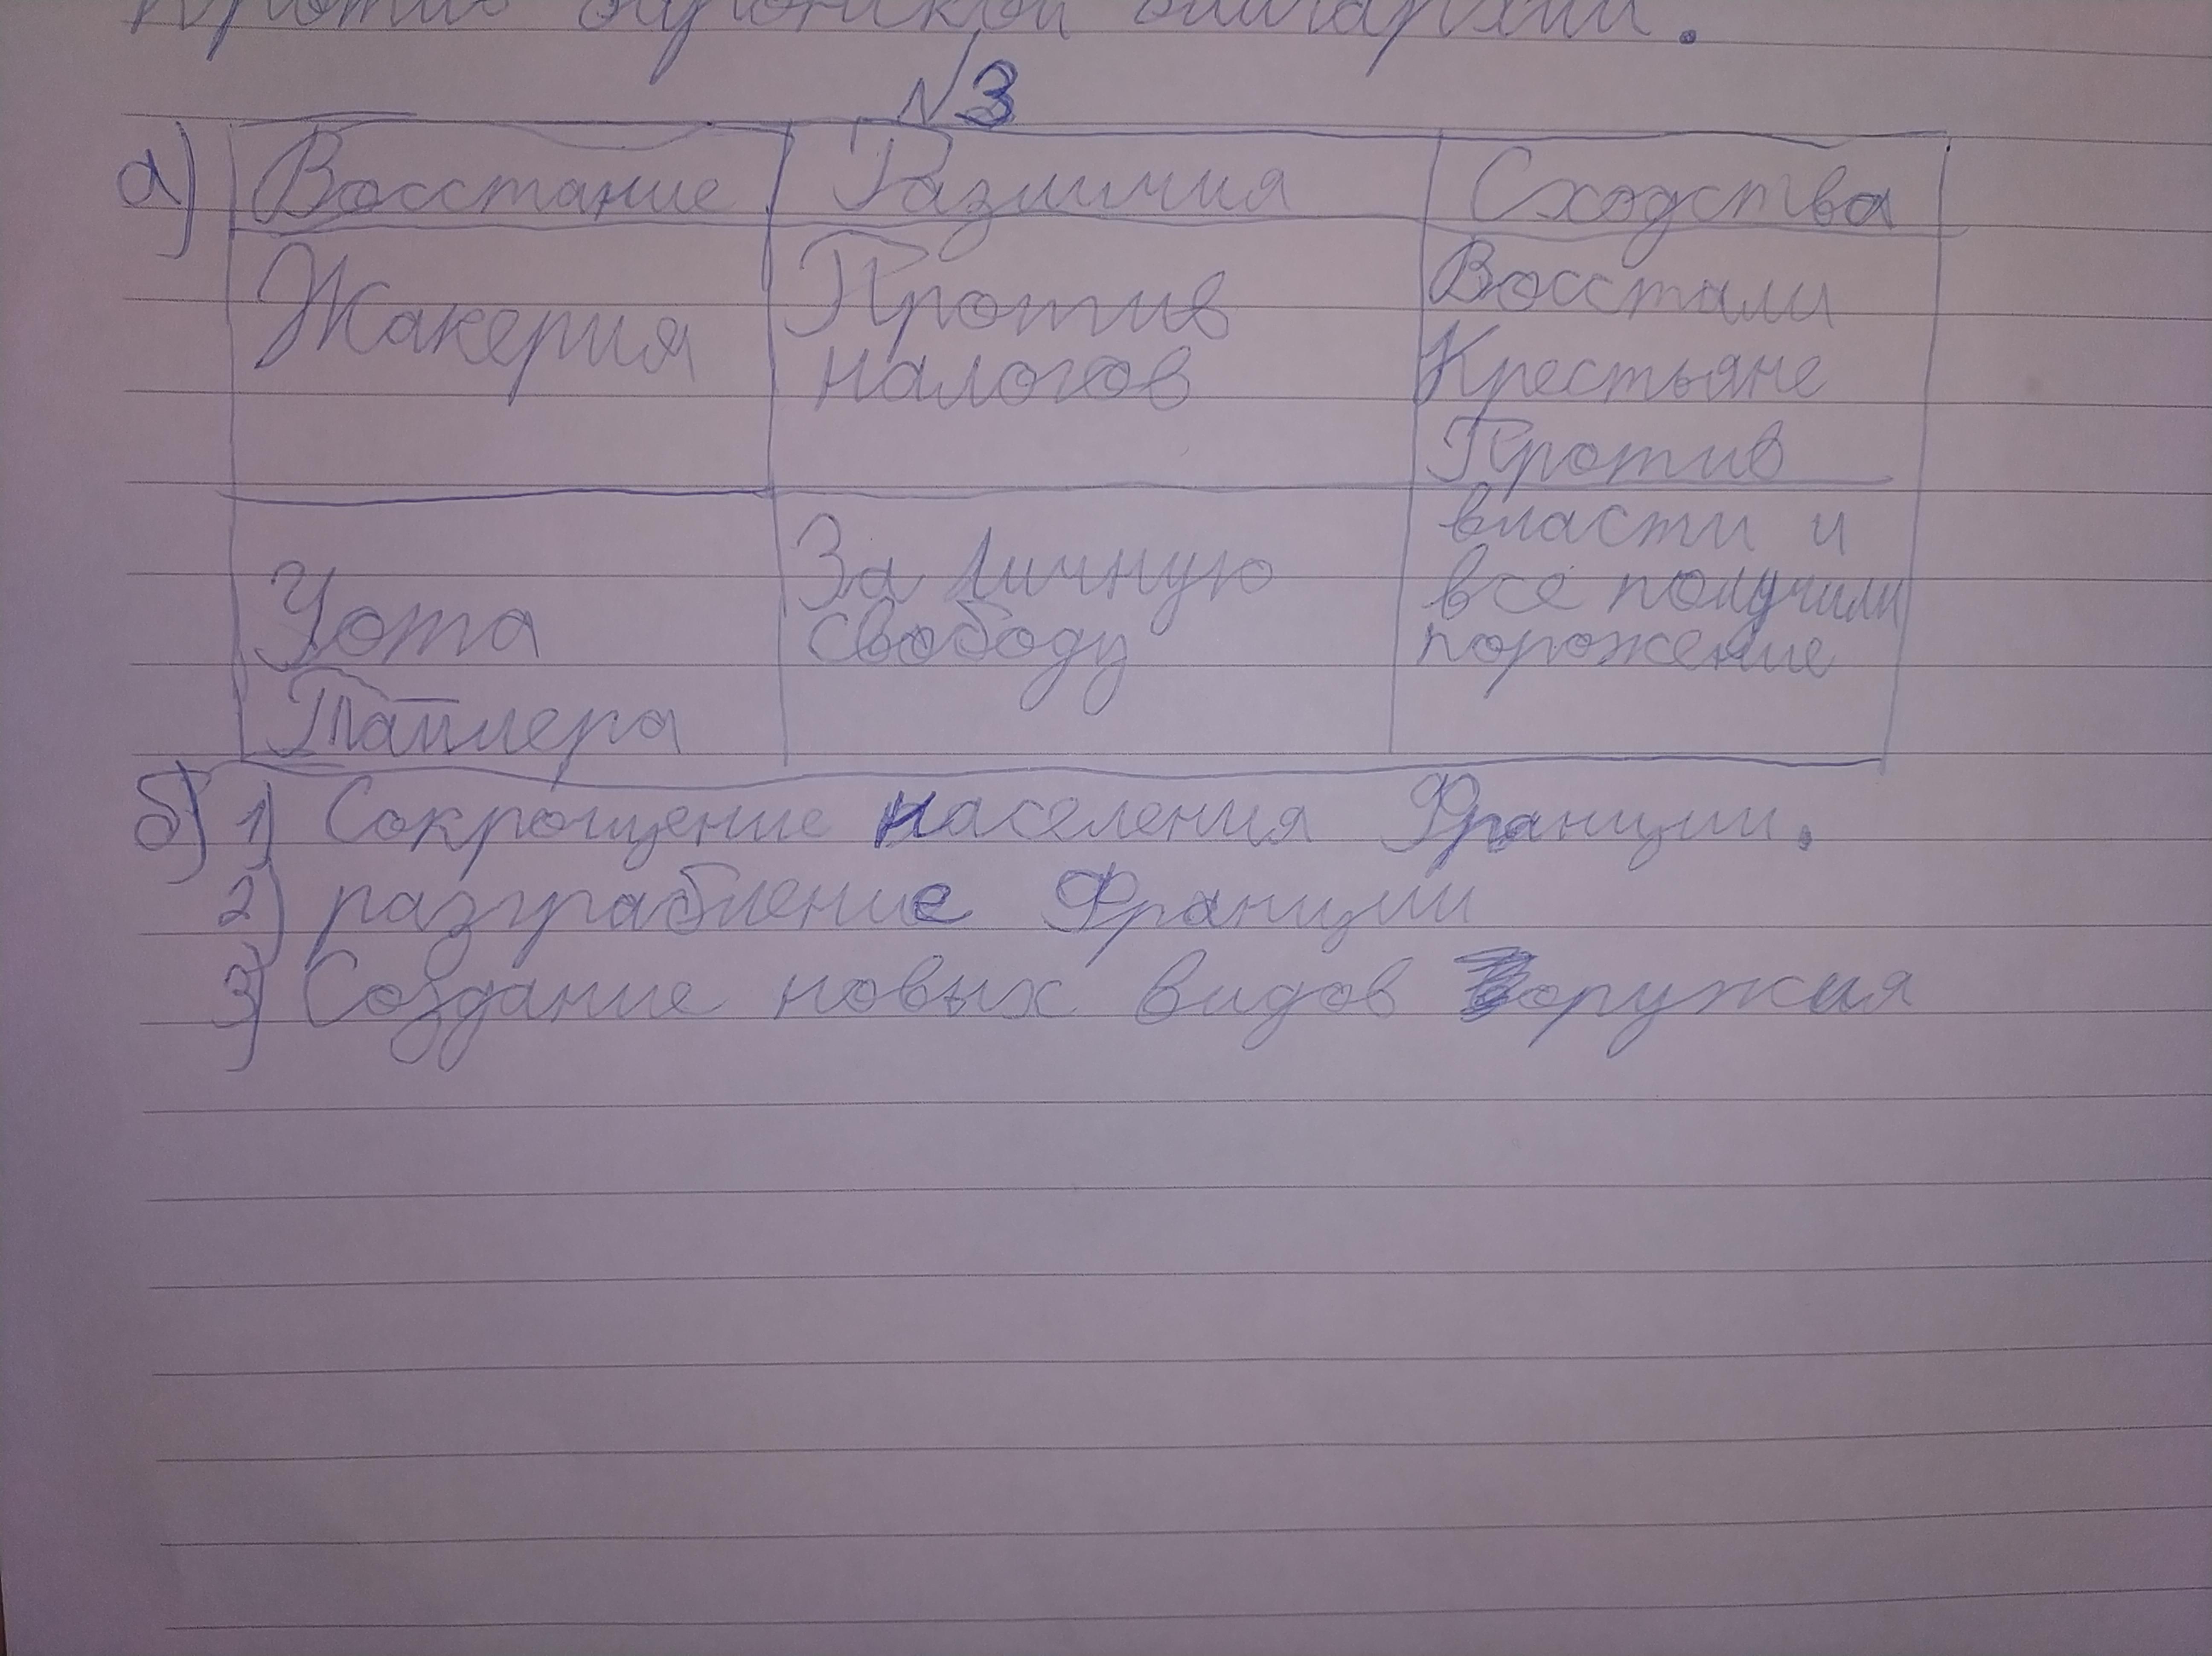 против баронской олигархии.
№3
а) Восстание Различия Сходства
Жакерия
Против
налогов
Восстали
Крестьяне
Против
власти и
все получили
порожение
Уота
Тайлера
За личную
свободу
б) 1) Сокрощение населения Франции.
2) разграбление Франции
3) Создание новых видов оружия